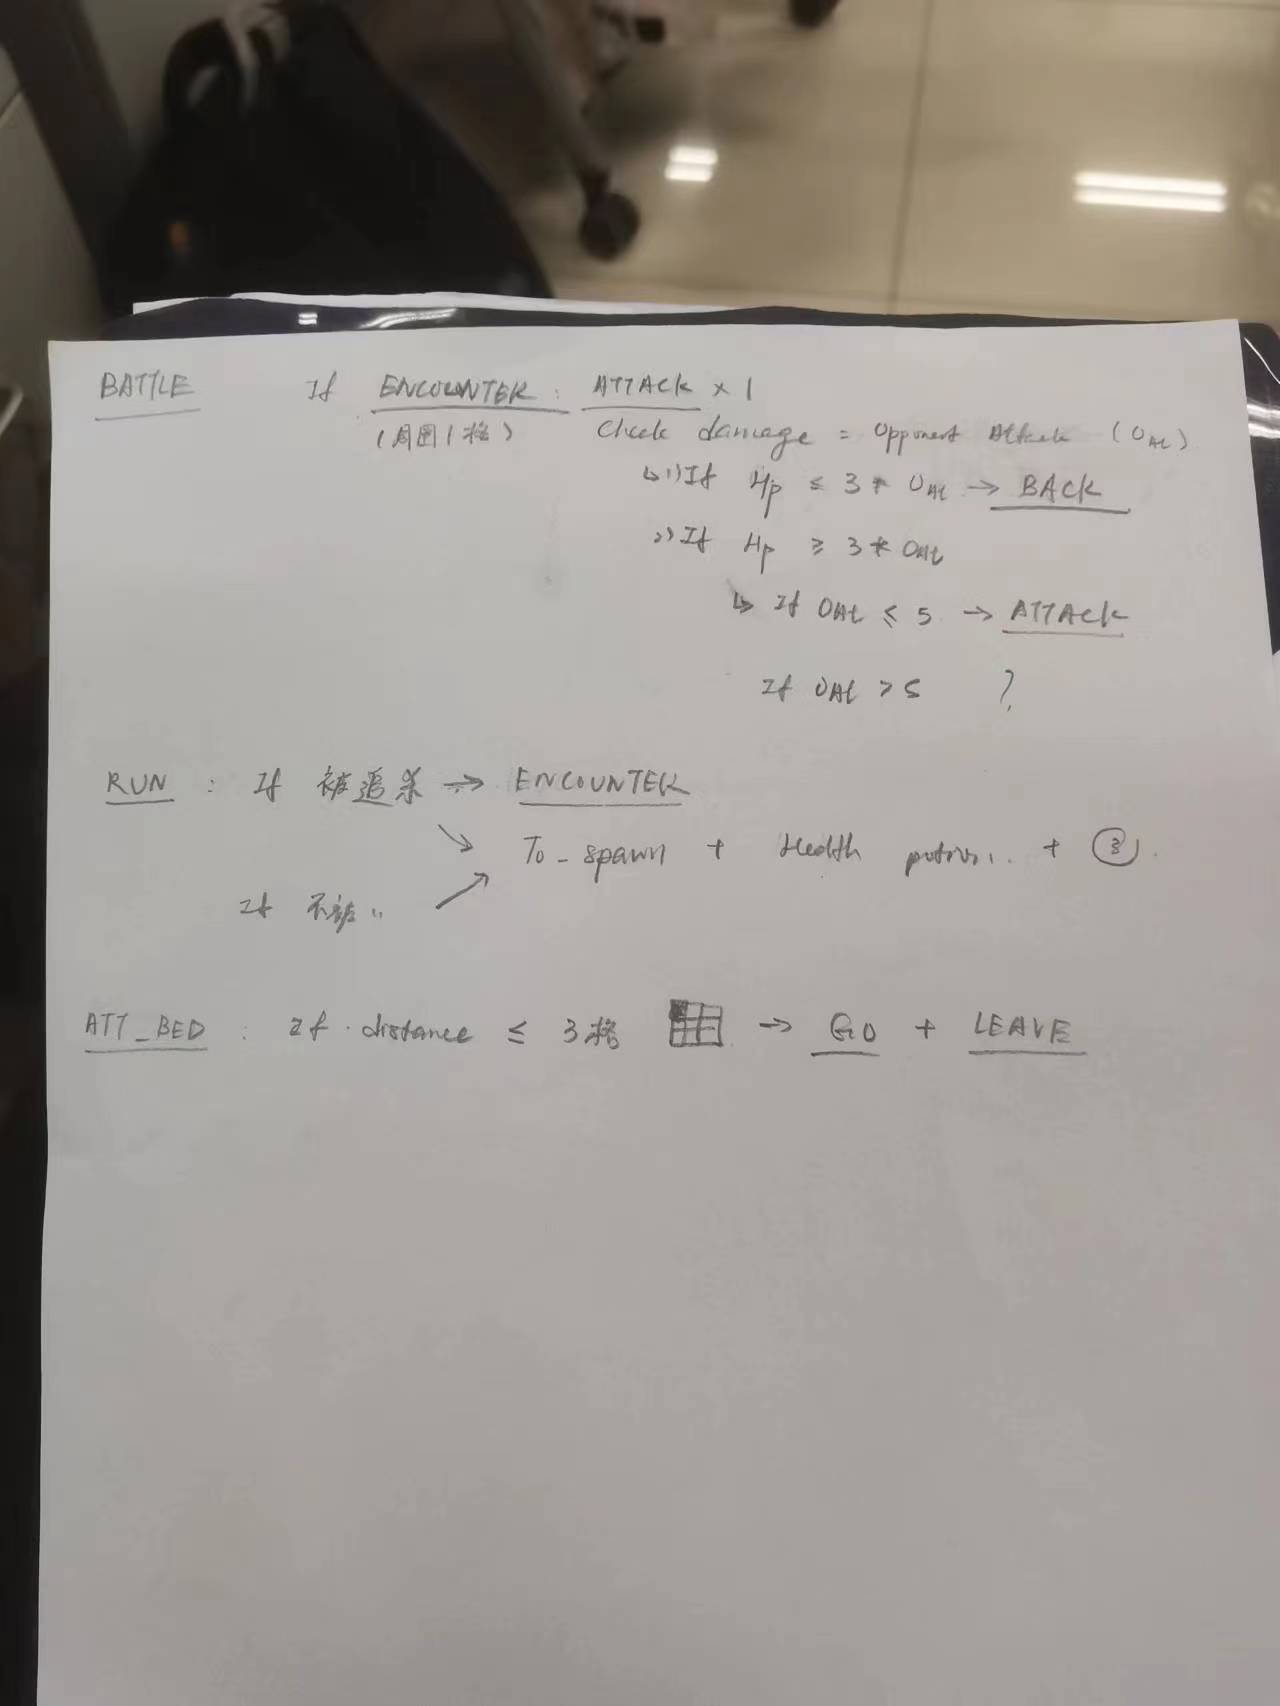 BATTLE If ENCOUNTER: ATTACK × 1
(周围1格) Check damage = Opponent Attack (OAt)
↳ 1) If Hp ≤ 3 * OAt → BACK
2) If Hp ≥ 3 * OAt
↳ If OAt ≤ 5 → ATTACK
If OAt > 5 ?
RUN : If 被追杀 → ENCOUNTER
↘ To_spawn + Health potion + ③.
If 不被 〃 ↗
ATT_BED : If distance ≤ 3格 → GO + LEAVE